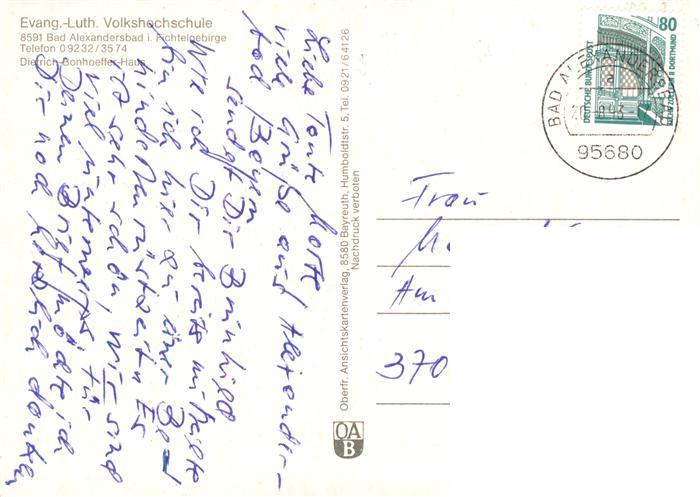 Evang.-Luth. Volkshochschule
8591 Bad Alexandersbad i. Fichtelgebirge
Telefon 09232/3574
Dietrich-Bonhoeffer-Haus
Liebe Tante Lotte
viele Grüße aus Alexander-
bad Bayern
sendet Dir Brünhild
Wie ich Dir bereits mitteilte
bin ich hier zu einer
Es
ist sehr schön, Wir sind
viel unterwegs. Für
Deinen Brief möchte ich
Dir noch herzlich danken
Oberfr. Ansichtskartenverlag, 8580 Bayreuth, Humboldtstr. 5, Tel. 0921/64126
Nachdruck verboten
OA
B
80
DEUTSCHE BUNDESPOST
ZECHE ZOLLERN II DORTMUND
BAD ALEXANDERSBAD
95680
Frau
Am
370